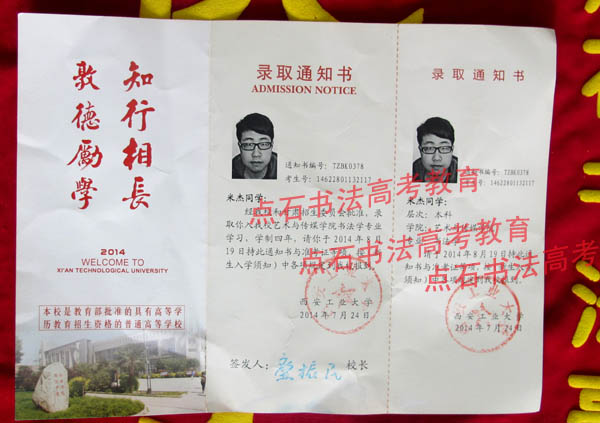 知行相長
敦德勵學
2014
WELCOME TO
XI'AN TECHNOLOGICAL UNIVERSITY
本校是教育部批准的具有高等学
历教育招生资格的普通高等学校
录取通知书
ADMISSION NOTICE
通知书编号:TZBK0378
考生号:14622801132117
米杰同学:
经我校和甘肃招生委员会批准,录
取你入我校艺术与传媒学院书法学专业
学习,学制四年,请你于2014年8月
19日持此通知书与准考证等
生入学须知》中各项
西安工业大学
2014年7月24日
签发人:
校长
录取通知书
通知书编号:TZBK0378
考生号:14622801132117
米杰同学:
层次:本科
学院:艺术与传媒学院
请于2014年8月19日持此通
知书与准考证等
须知》中各项
西安工业大学
2014年7月24日
点石书法高考教育
点石书法高考教育
点石书法高考